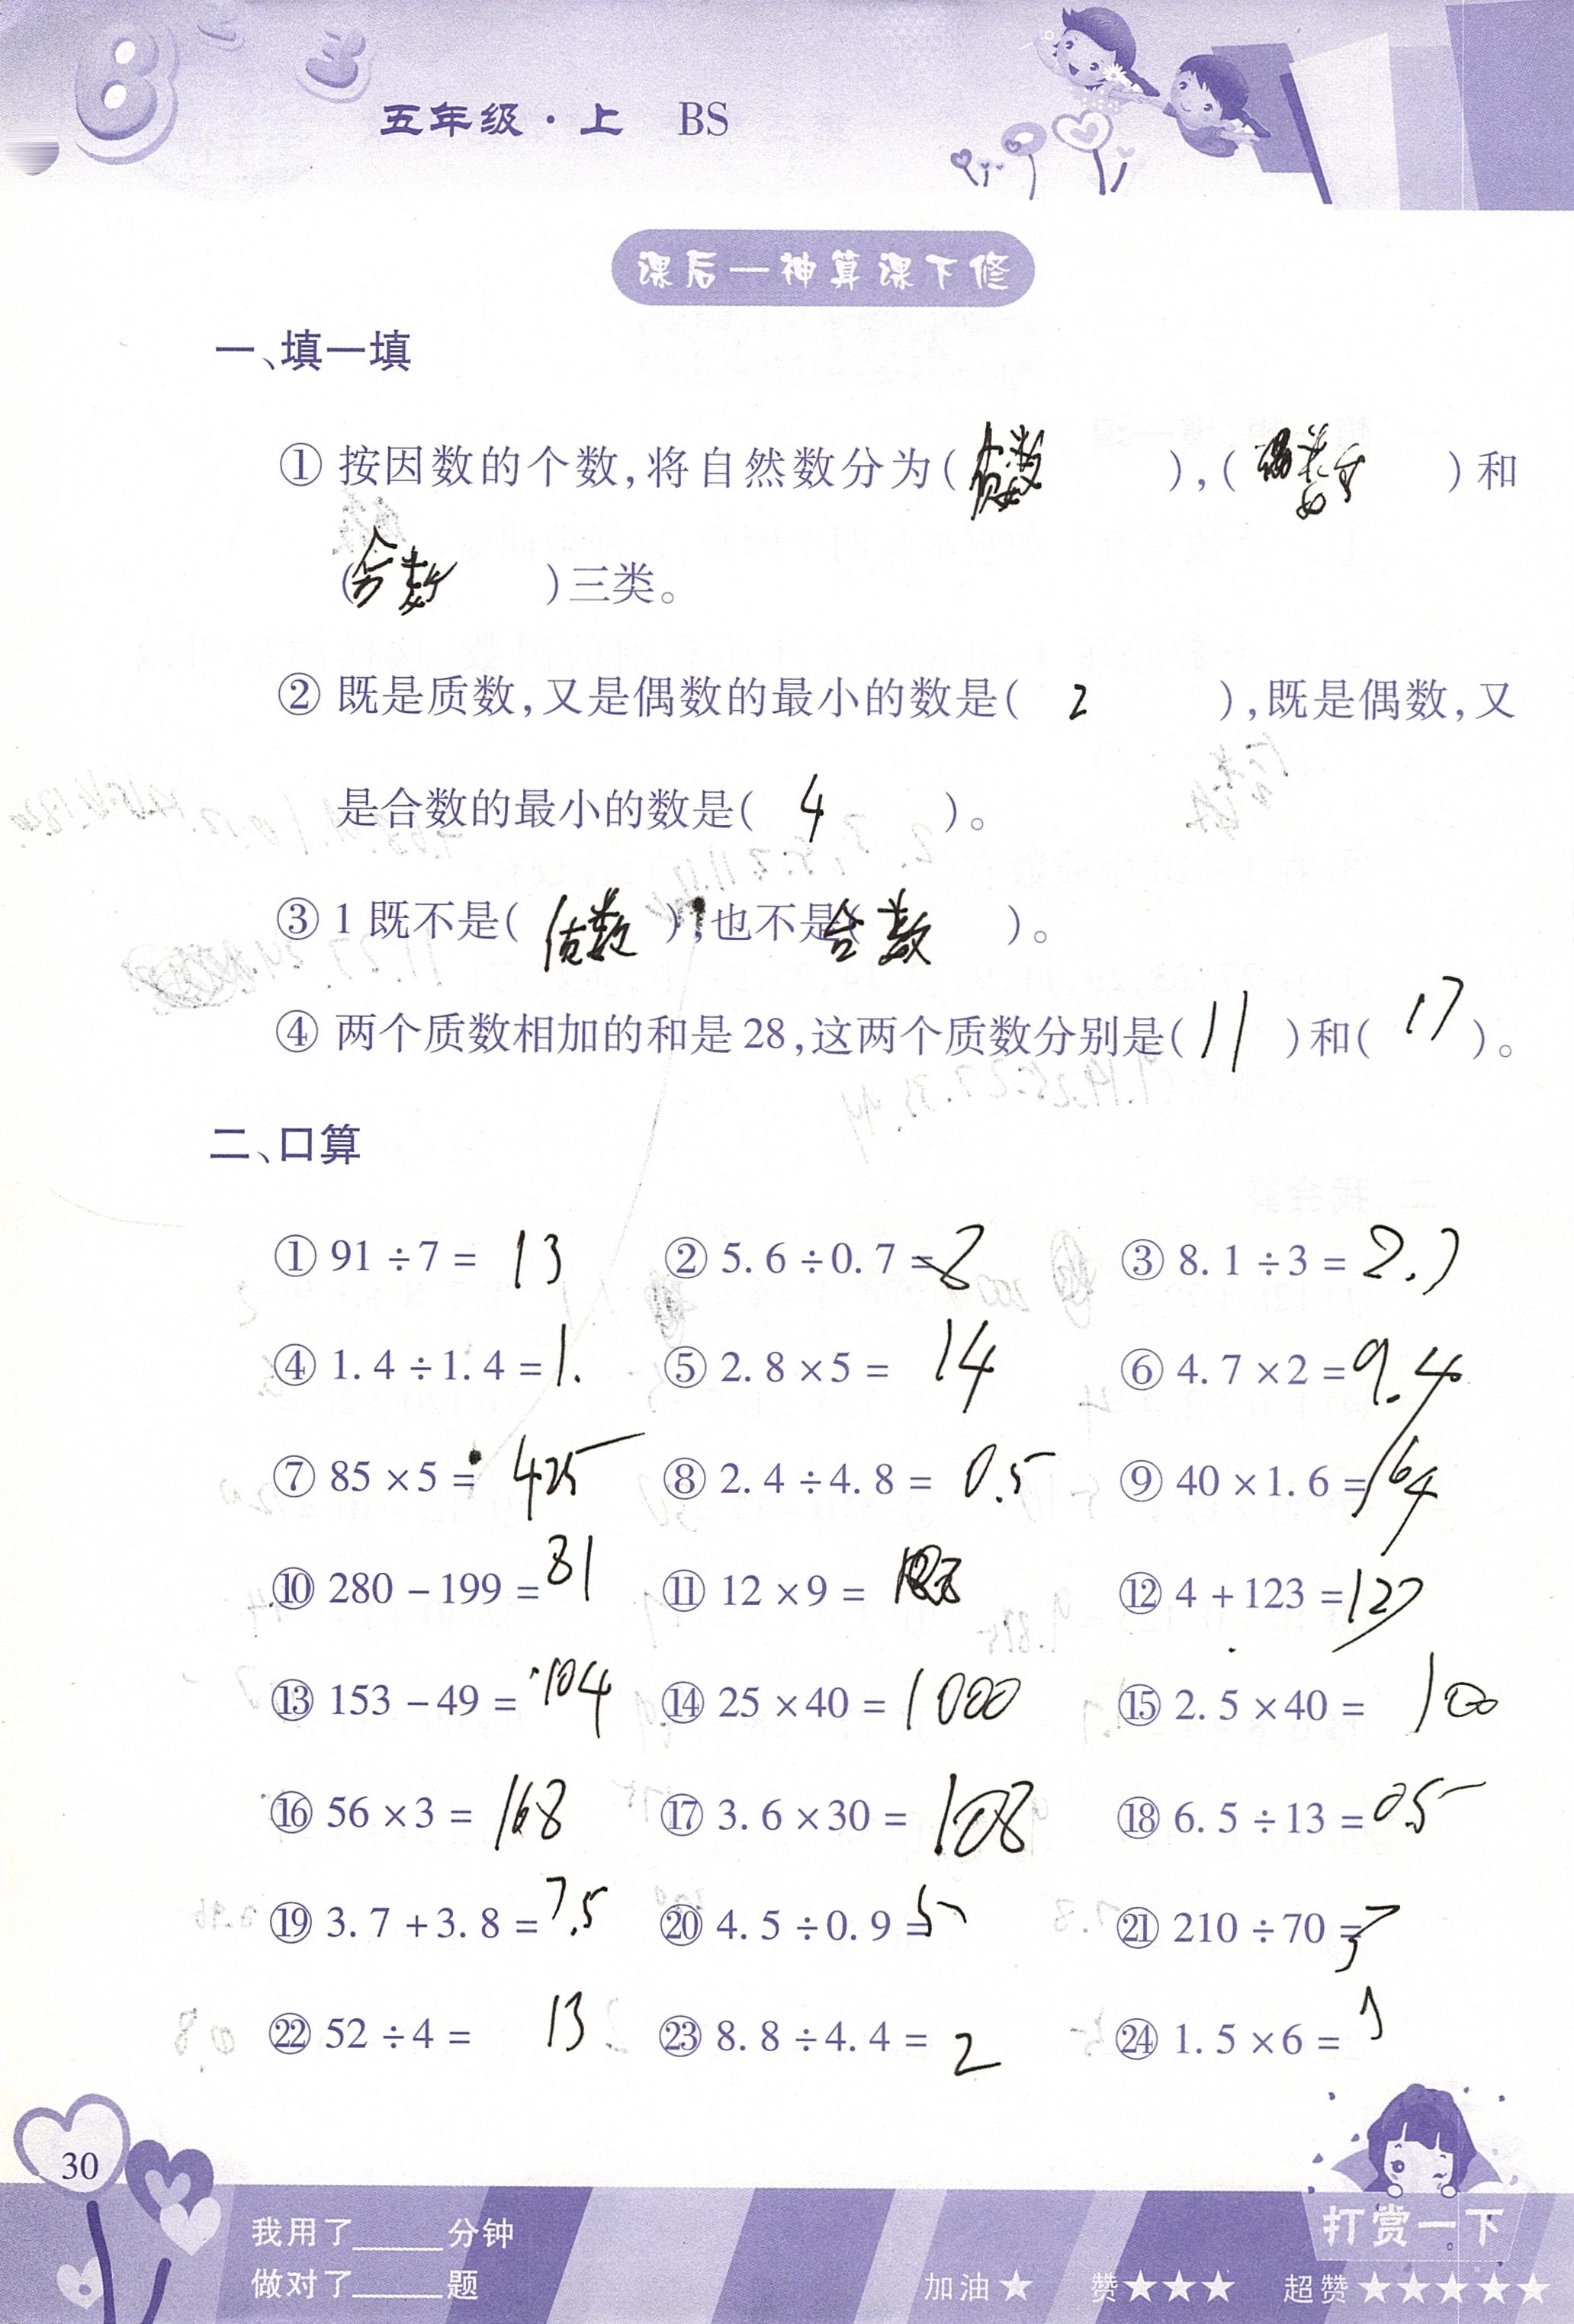 五年级·上 BS
课后—神算课下修
一、填一填
① 按因数的个数,将自然数分为( ),( )和
(合数)三类。
② 既是质数,又是偶数的最小的数是( 2 ),既是偶数,又
是合数的最小的数是( 4 )。
③ 1既不是( 质数 ),也不是(合数 )。
④ 两个质数相加的和是28,这两个质数分别是( 11 )和( 17 )。
二、口算
① 91÷7= 13 ② 5.6÷0.7=8 ③ 8.1÷3=2.7
④ 1.4÷1.4=1. ⑤ 2.8×5= 14 ⑥ 4.7×2=9.4
⑦ 85×5= 425 ⑧ 2.4÷4.8= 0.5 ⑨ 40×1.6=164
⑩ 280-199=81 ⑪ 12×9= ⑫ 4+123=127
⑬ 153-49=104 ⑭ 25×40=1000 ⑮ 2.5×40= 100
⑯ 56×3= 168 ⑰ 3.6×30= 108 ⑱ 6.5÷13=0.5
⑲ 3.7+3.8=7.5 ⑳ 4.5÷0.9=5 ㉑ 210÷70=
㉒ 52÷4= 13 ㉓ 8.8÷4.4= 2 ㉔ 1.5×6=
30
我用了_____分钟
做对了_____题
打赏一下
加油★ 赞★★★ 超赞★★★★★